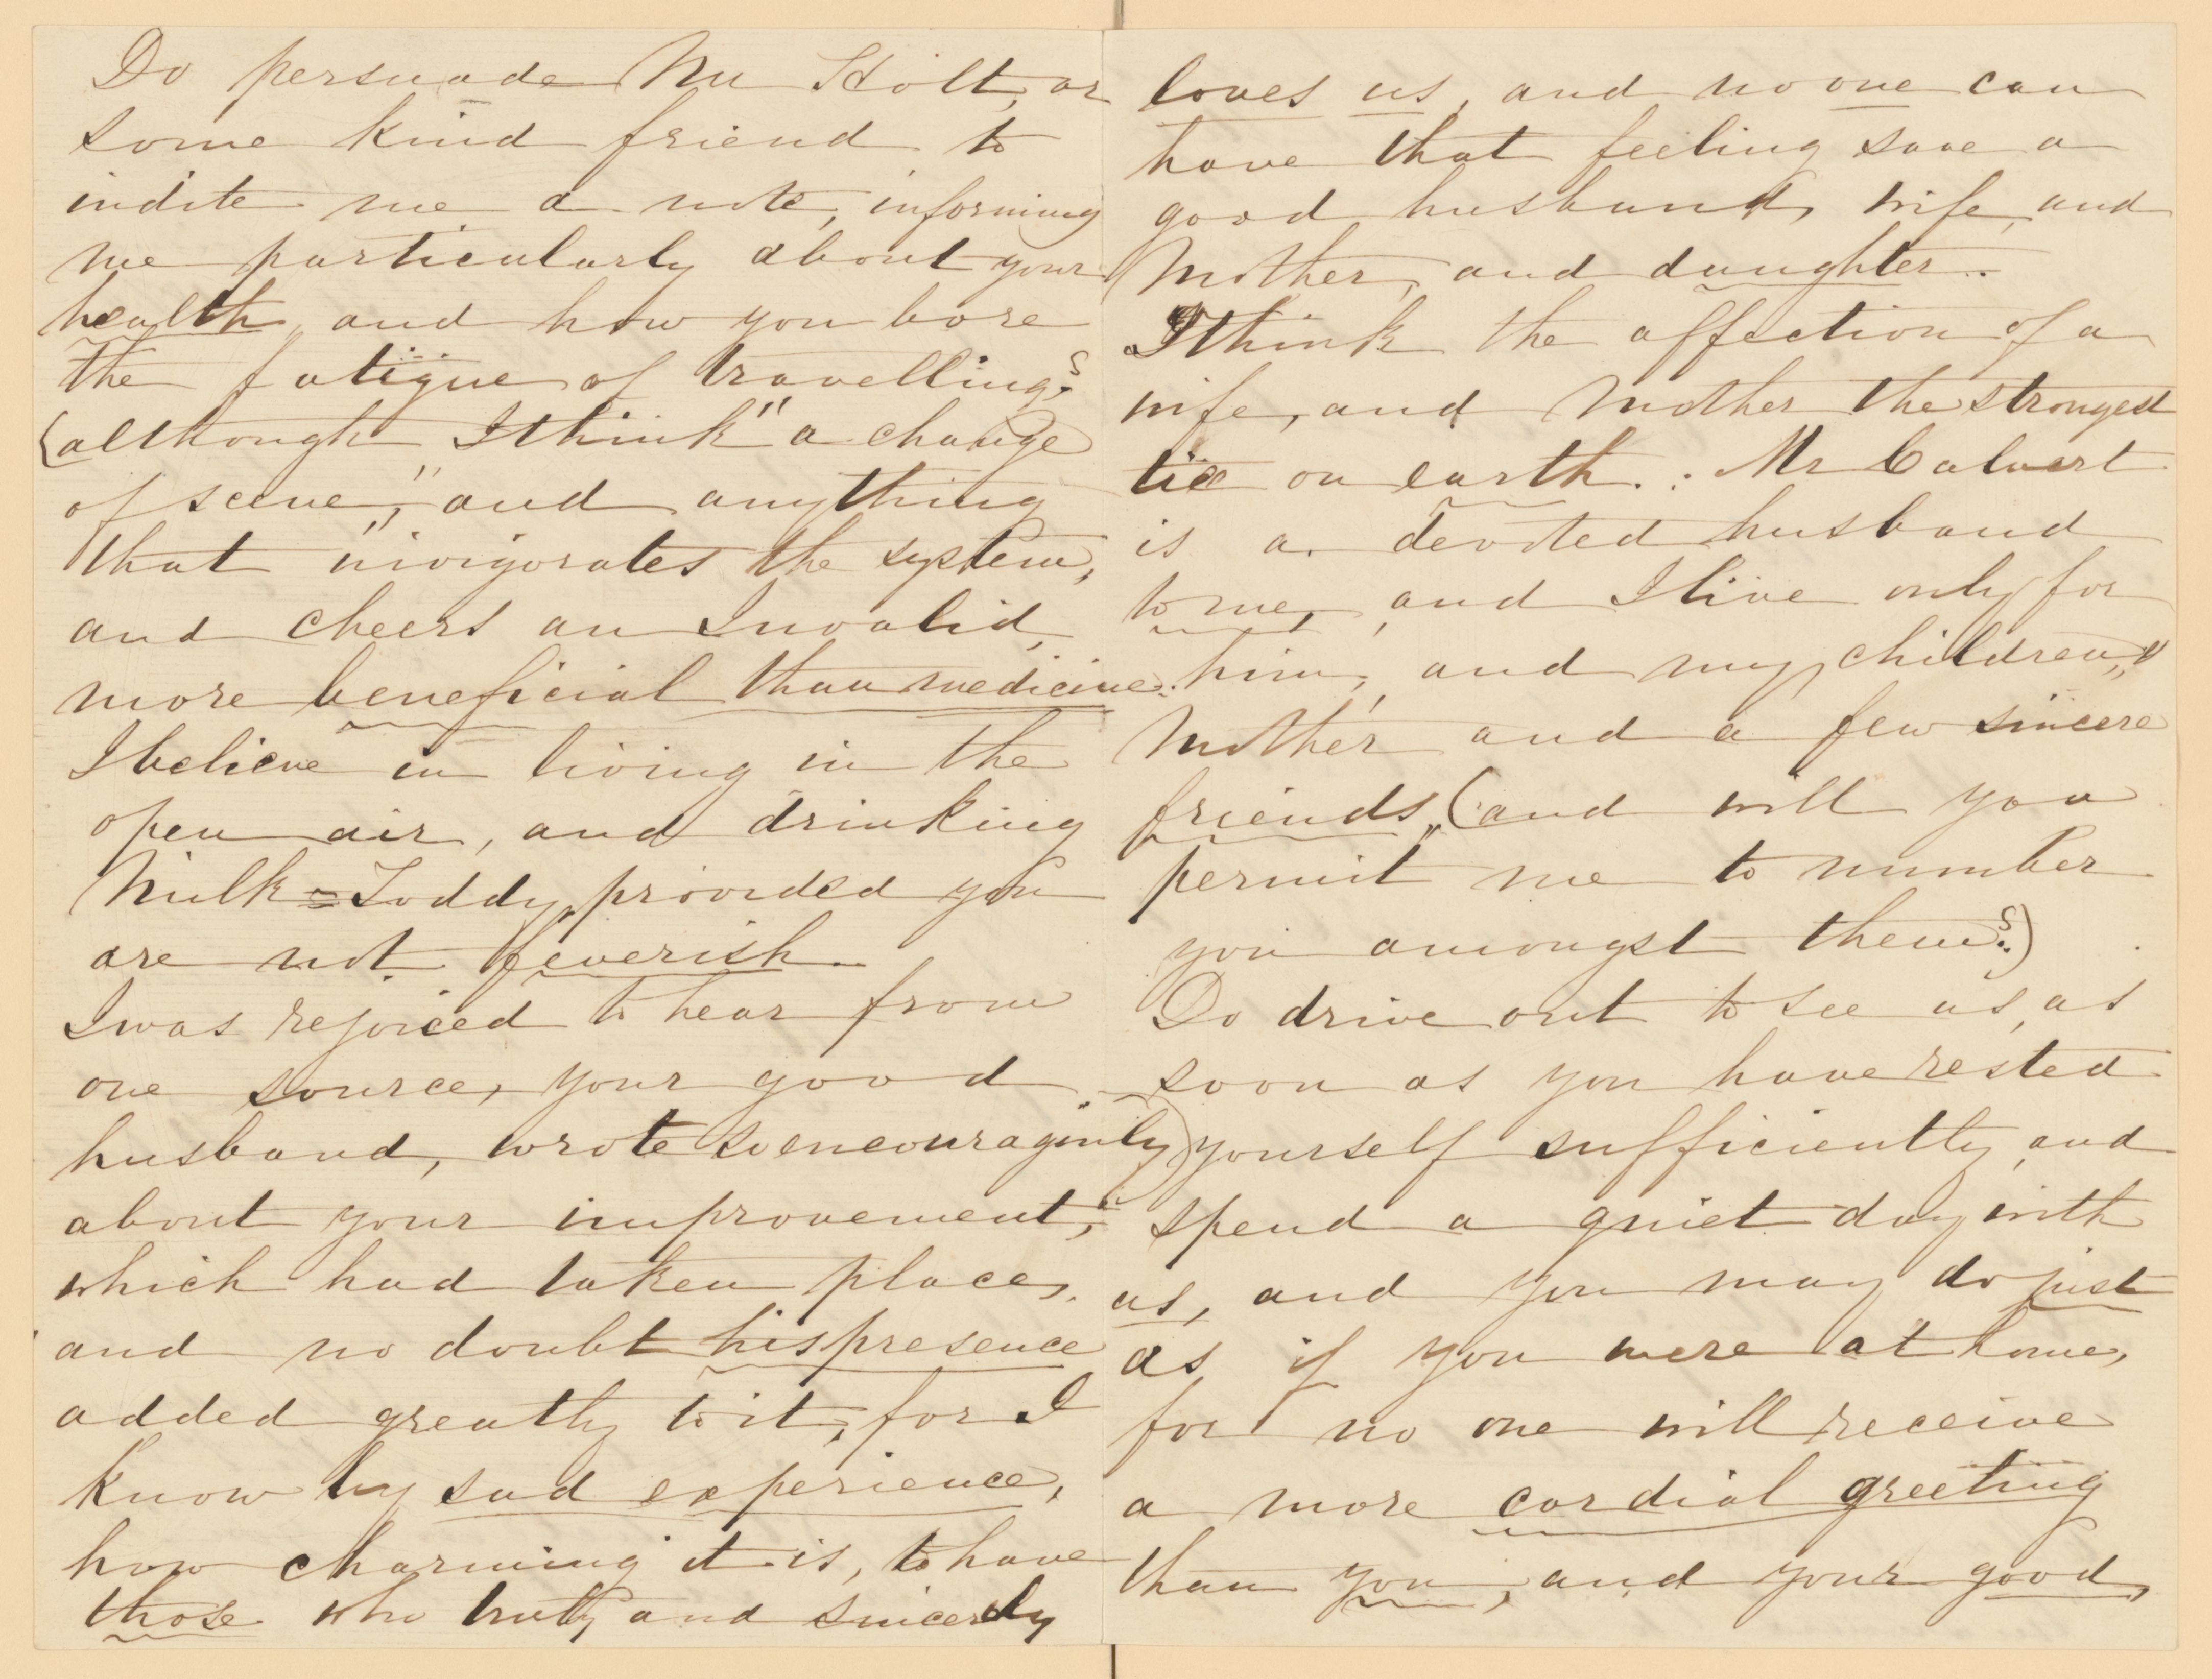 Do persuade Mr Holt, or
some kind friend to
indite me a note, informing
me particularly about your
health, and how you bore
the fatigue of travelling?
(although I think "a change
of scene," and anything
that "invigorates the system,
and cheers an Invalid,
more beneficial than medicine.
I believe in living in the
open air, and drinking
Milk=Toddy, provided you
are not feverish.
I was rejoiced to hear from
one source, your good
husband, wrote so encouraginly
about your improvement,
which had taken place,
and no doubt his presence
added greatly to it, for I
know by sad experience,
how charming it is, to have
those who truly and sincerely
loves us, and no one can
have that feeling save a
good husband, wife, and
Mother, and daughter.
I think the affection of a
wife, and Mother the strongest
tie on earth. Mr Calvert
is a devoted husband
to me, and I live only for
him, and my children,
Mother and a few sincere
friends, (and will you
permit me to number
you amongst them?)
Do drive out to see us, as
soon as you have rested
yourself sufficiently, and
spend a quiet day with
us, and you may do just
as if you were at home,
for no one will receive
a more cordial greeting
than you, and your good,